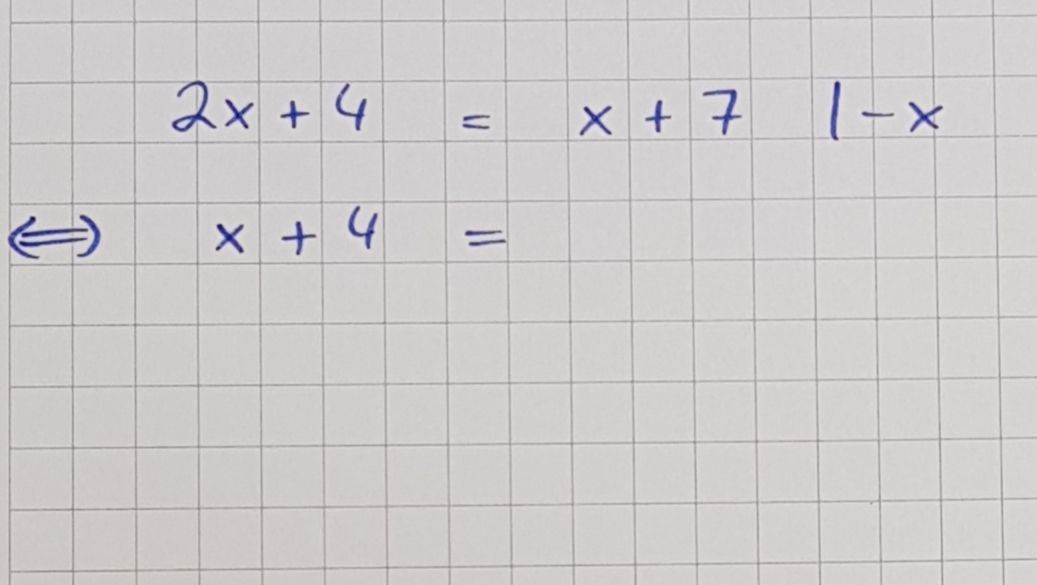 2x + 4 = x + 7 | - x
⇔ x + 4 =